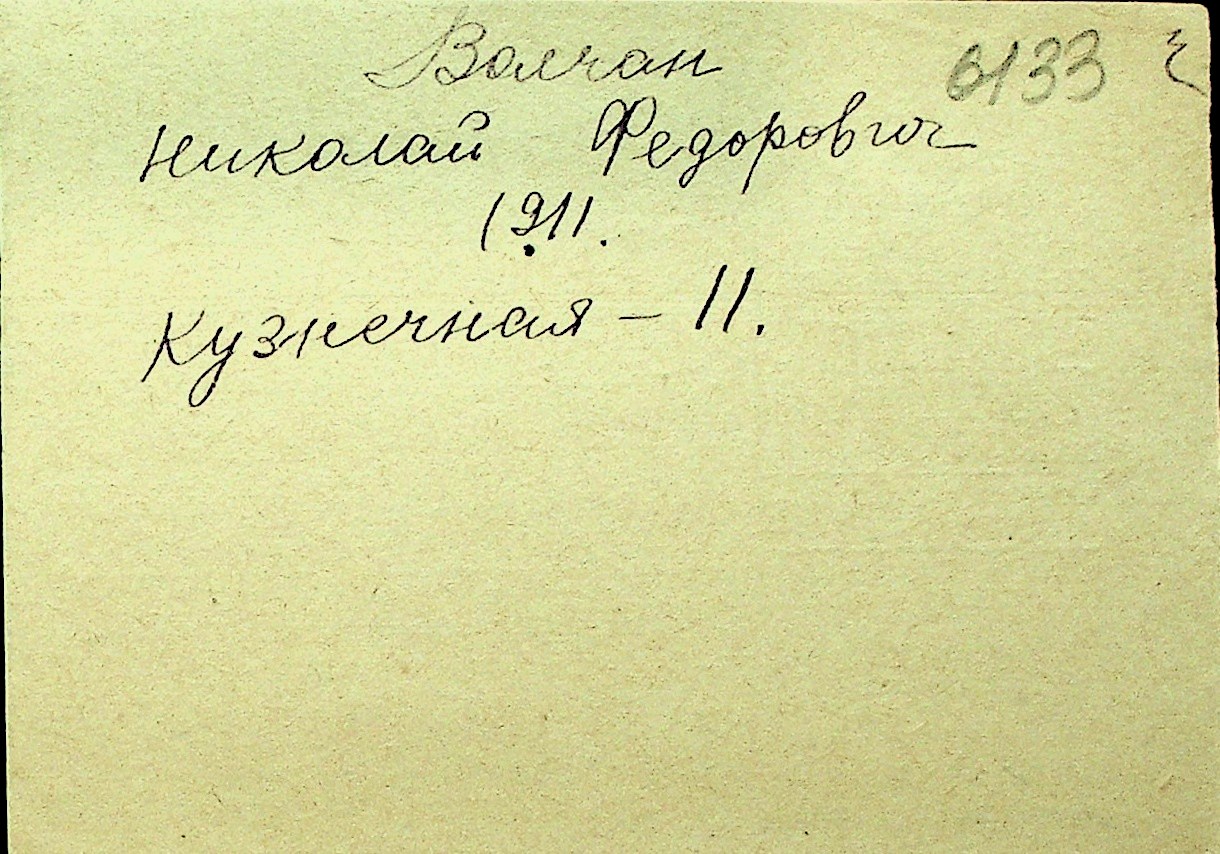 Волчан 6133
Николай Федорович
1911.
Кузнечная - 11.